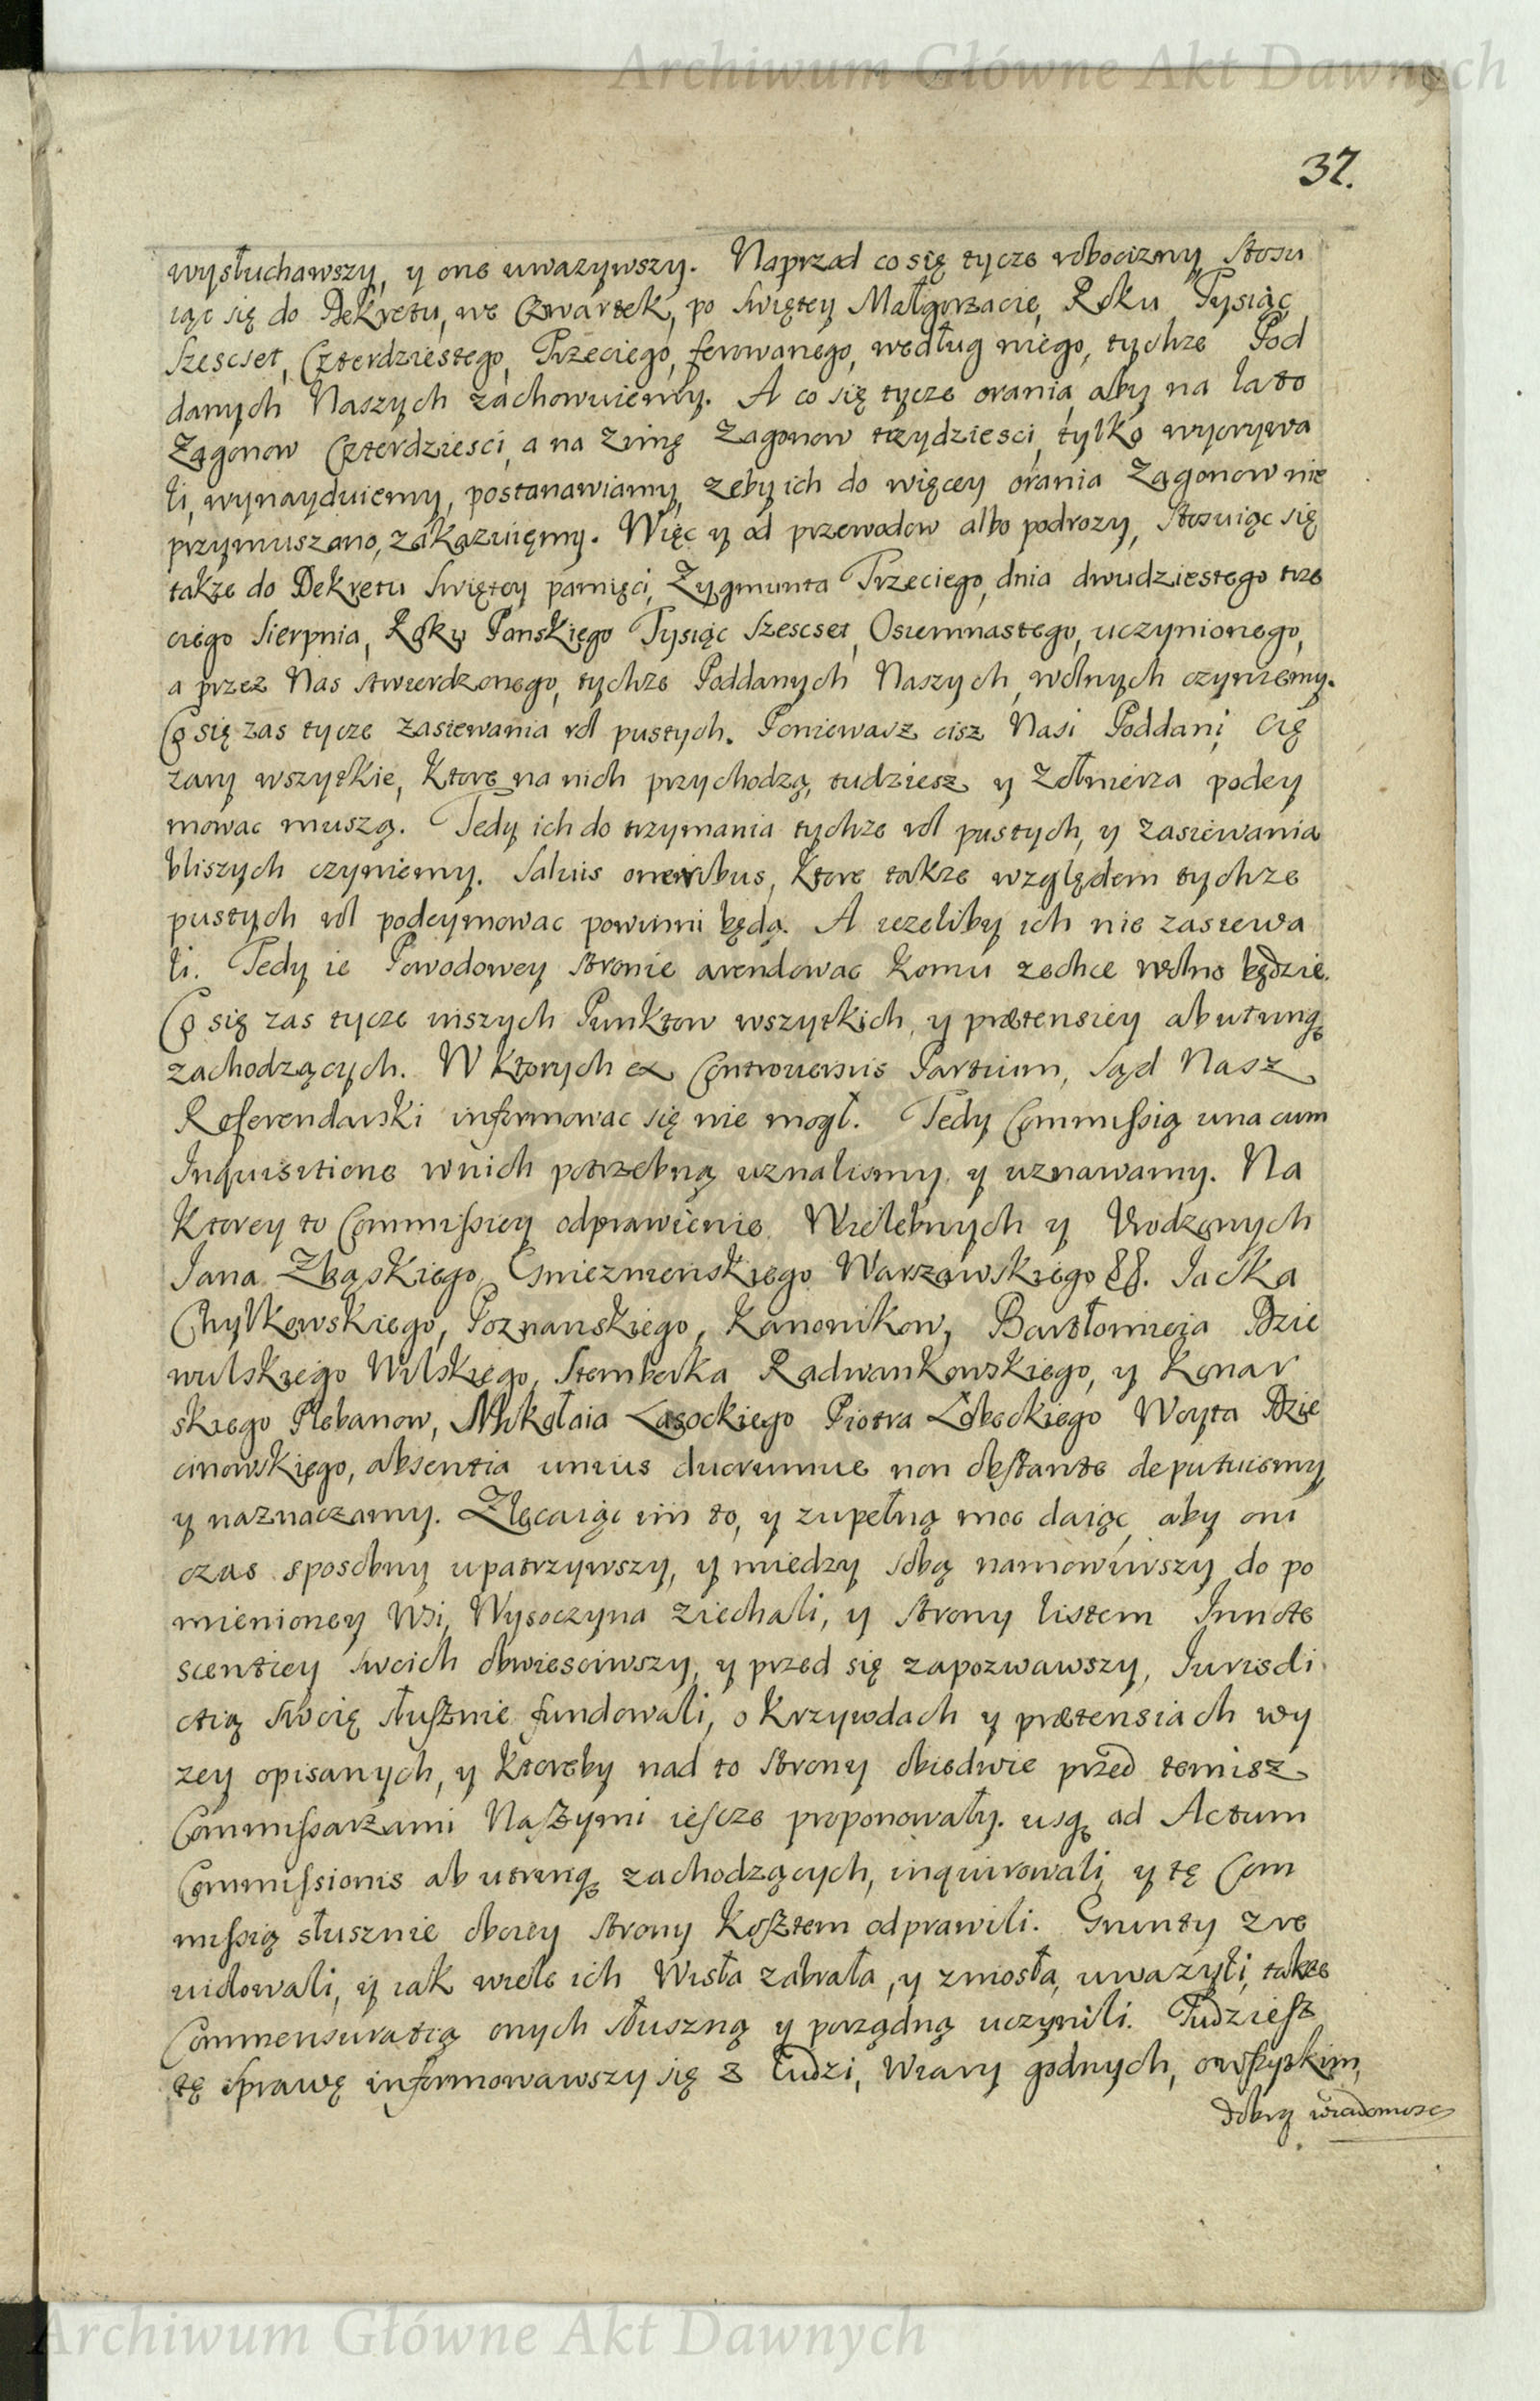 Archiwum Główne Akt Dawnych
37.
wysłuchawszy, y one uwazywszy. Naprzod co się tycze robocizny, stosu
iąc się do Dekretu, we Czwartek, po Swiętey Małgorzacie, Roku Tysiąc
Szescset, Czterdziestego, Trzeciego, ferowanego, według niego, tychze Pod
danych Naszych zachowuiemy. A co się tycze orania, aby na lato
Zagonow Czterdziesci, a na Zimę Zagonow trzydziesci, tylko wyorywa
li, wynayduiemy, postanawiamy, zeby ich do więcey orania Zagonow nie
przymuszano, zakazuięmy. Więc y od przewodow albo podrozy, stosuiąc się
takze do Dekretu Swiętey pamięci, Zygmunta Trzeciego, dnia dwudziestego trze
ciego Sierpnia, Roku Panskiego Tysiąc Szescset, Osiemnastego, uczynionego,
a przez Nas stwierdzonego, tychze Poddanych Naszych, wolnych czyniemy.
Co się zas tycze zasiewania rol pustych. Poniewasz cisz Nasi Poddani, Cię
zary wszytkie, ktore na nich przychodzą, tudziesz y Zołnierza podey
mowac muszą. Tedy ich do trzymania tychze rol pustych, y zasiewania
bliszych czyniemy. Saluis oneribus, ktore takze względem tychze
pustych rol podeymowac powinni będą. A iezeliby ich nie zasiewa
li. Tedy ie Powodowey stronie arendowac komu zechce wolno będzie.
Co się zas tycze inszych Punktow wszytkich, y prætensiey ab utrinq
zachodzących. W ktorych ex Controuersiis Partium, Sąd Nasz
Referendarski informowac się nie mogł. Tedy Commissią una cum
Inquisitione w nich potrzebną uznalismy y uznawamy. Na
ktorey to Commissiey odprawienie Wielebnych y Urodzonych
Jana Zbąskiego, Gnieznienskiego Warszawskiego &&. Jacka
Chylkowskiego, Poznanskiego, Kanonikow, Bartłomieia Dzie
wulskiego Wilskiego, Stemberka Radwankowskiego, y Konar
skiego Plebanow, Mikołaia Lasockiego Piotra Łobeckiego Woyta Dzie
cinowskięgo, absentia unius duorumue non obstante deputuiemy
y naznaczamy. Zlecaiąc im to, y zupełną moc daiąc, aby oni
czas sposobny upatrzywszy, y miedzy sobą namowiwszy, do po
mienioney Wsi, Wysoczyna ziechali, y strony listem Innote
scentiey swoich obwiesciwszy, y przed się zapozwawszy, Jurisdi
ctią swoię słusznie fundowali, o krzywdach y prætensiach wy
zey opisanych, y ktoreby nad to strony obiedwie przed temisz
Commissarzami Naszymi iescze proponowały. usq ad Actum
Commissionis ab utrinq zachodzących, inquirowali, y tę Com
missią słusznie oboiey strony kosztem odprawili. Grunty zre
uidowali, y iak wiele ich Wisła zabrała, y zniosła, uwazyli, takze
Commensuratią onych słuszną y porządną uczynili. Tudziesz
tę sprawę informowawszy się z ludzi, Wiary godnych, o wszytkim,
dobrą wiadomosc
Archiwum Główne Akt Dawnych